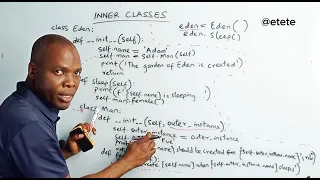 INNER CLASSES
@etete
class Eden:
eden = Eden( )
eden.sleep()
def __init__(self):
self.name = 'Adam'
self.man = self.Man(self)
print('The garden of Eden is created')
return
def sleep(self):
print(f'{self.name} is sleeping
self.man.female()
class Man:
def __init__(self, outer_instance):
self.outer_instance = outer_instance
self.
print
should be created from {self.outer_instance.name}
def
when {self.outer_instance.name} sleeps